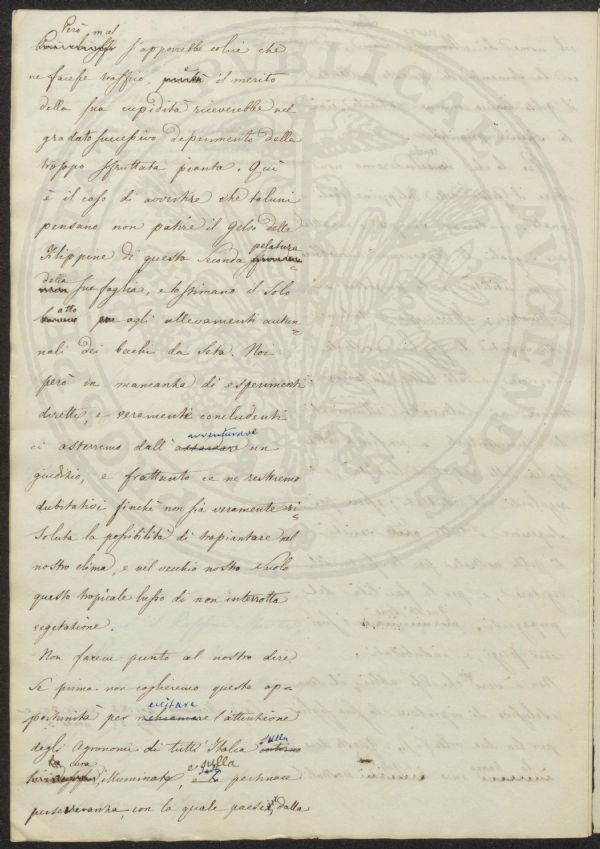 Però mal
s'apporrebbe colui che
ne facesse traffico, il merito
della sua cupidità riceverebbe nel
gradato successivo deprimento della
troppo sfruttata pianta. Quì
è il caso di avvertire che taluni
pensano non patire il Gelso delle
Filippine di questa seconda pelatura
della sue foglia, e lo stimano il solo
atto agli allevamenti autun=
nali dei bachi da seta. Noi
però in mancanza di esperimenti
diretti, e veramente concludenti
ci asterremo dall'avventurare un
giudizio, e frattanto ce ne resteremo
dubitativi finchè non sia veramente ri=
soluta la possibilità di trapiantare nel
nostro clima, e nel vecchio nostro suolo
questo tropicale lusso di non interrotta
vegetazione.
Non faremo punto al nostro dire
se prima non coglieremo questa op=
portunità per eccitare l'attenzione
degli Agronomi di tutta Italia sulla
cura illuminata, e sulla pertinace
perseveranza, con la quale dalla